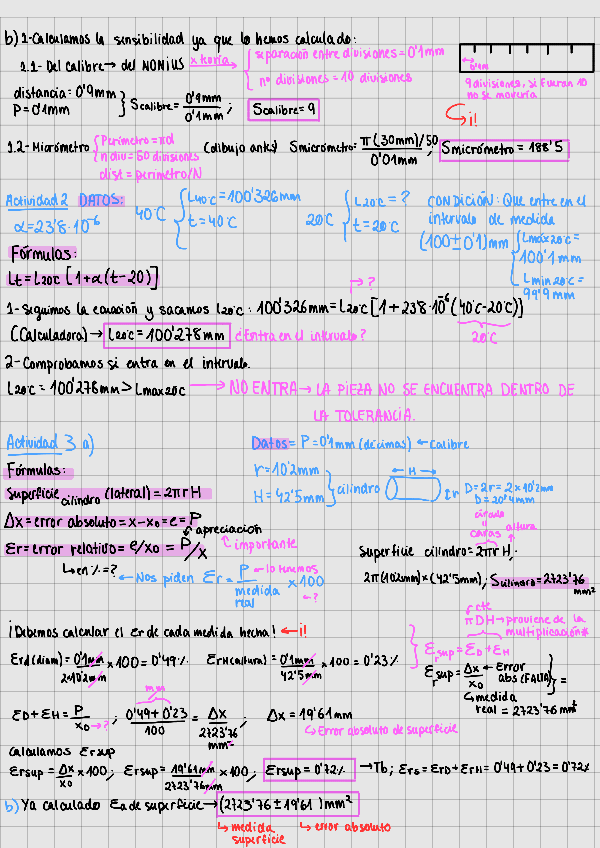 b) 1-Calculamos la sensibilidad ya que lo hemos calculado:
1.1-Del calibre → del NONIUS x teoría → separación entre divisiones = 0'1mm
nº divisiones = 10 divisiones
9 divisiones, si fueran 10
no se movería
¡!
distancia = 0'9mm
P = 0'1mm } Scalibre = 0'9mm / 0'1mm ; Scalibre = 9
1.2-Micrómetro { Perímetro = πd
n div = 50 divisiones
dist = perímetro/N
(dibujo antes) Smicrómetro = π(30mm)/50 / 0'01mm ; Smicrómetro = 188'5
Actividad 2 DATOS:
α = 23'8·10⁻⁶
40ºC { L40ºC = 100'326mm
t = 40ºC
20ºC { L20ºC = ?
t = 20ºC
CONDICIÓN: Que entre en el
intervalo de medida
(100±0'1)mm { Lmáx20ºC =
100'1mm
Lmin20ºC =
99'9mm
Fórmulas:
Lt = L20ºC [1+α(t-20)]
→ ?
1-Seguimos la ecuación y sacamos L20ºC: 100'326mm = L20ºC [1+23'8·10⁻⁶(40ºC-20ºC)]
20ºC
(Calculadora) → L20ºC = 100'278mm ¿Entra en el intervalo?
2-Comprobamos si entra en el intervalo.
L20ºC = 100'278mm > Lmax20ºC → NO ENTRA → LA PIEZA NO SE ENCUENTRA DENTRO DE
LA TOLERANCIA.
Actividad 3 a)
Datos = P = 0'1mm (décimas) ← Calibre
r = 10'2mm
H = 42'5mm } cilindro
← H →
r
D = 2r = 2 × 10'2mm
D = 20'4mm
Fórmulas:
Superficie cilindro (lateral) = 2πrH
Δx = error absoluto = x-x₀ = e = P
apreciación
Er = error relativo = e/x₀ = P/x
importante
↳ en % = ? ← Nos piden Er = P / medida real × 100
← lo tenemos
← ?
círculo
caras altura
Superficie cilindro = 2πrH;
2π(10'2mm)×(42'5mm); Scilindro = 2723'76 mm²
¡Debemos calcular el Er de cada medida hecha! ← ¡!
← cte
πDH → proviene de la
multiplicación*
Ersup = ED + EH
Ersup = Δx / x₀ ← Error
abs (FALTA) =
↳ medida
real = 2723'76 mm²
Erd(diam) = 0'1mm / 2×10'2mm × 100 = 0'49% Erh(altura) = 0'1mm / 42'5mm × 100 = 0'23%
mm
ED + EH = P / x₀ → ? ; 0'49+0'23 / 100 = Δx / 2723'76 mm² ; Δx = 19'61mm
↳ Error absoluto de superficie
Calculamos Ersup
Ersup = Δx / x₀ × 100; Ersup = 19'61mm / 2723'76mm × 100; Ersup = 0'72% → Tb; Ers = ErD + ErH = 0'49+0'23 = 0'72%
b) Ya calculado Ea de superficie → (2723'76 ± 19'61) mm²
↳ medida
superficie
↳ error absoluto